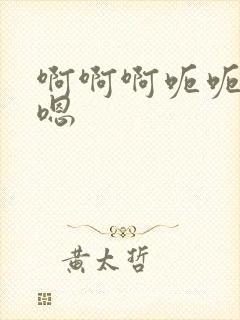 啊啊啊呃呃
嗯
黄太哲